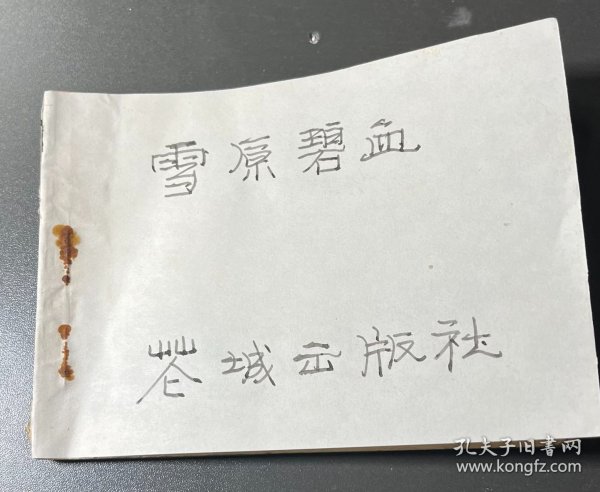 雪原碧血
花城出版社
孔夫子旧书网
www.kongfz.com